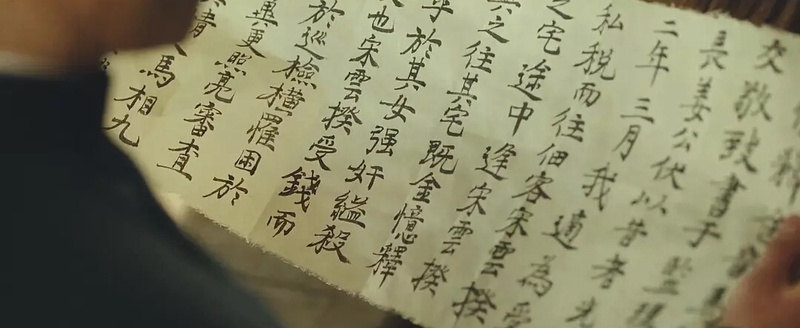 敬致書手
長姜公伏以昔者光
二年三月我適為受
私稅而往佃客宋雲揆
之宅途中逢宋雲揆
之往其宅既金憶釋
於其女强奸縊殺
也宋雲揆受錢而
於巡檢橫罹困於
更照亮審査
馬相九